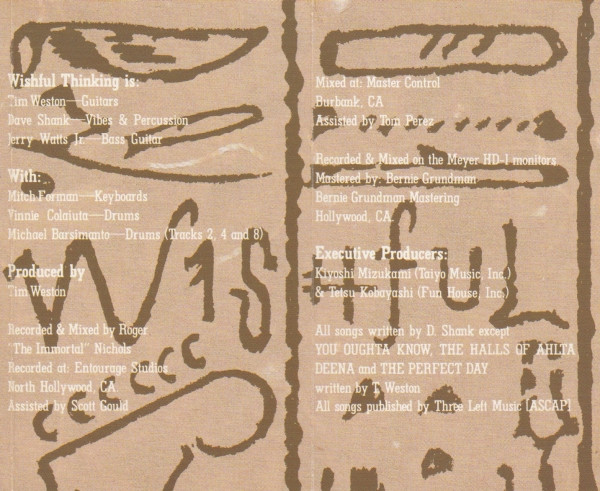 Wishful Thinking is:
Tim Weston—Guitars
Dave Shank—Vibes & Percussion
Jerry Watts Jr.—Bass Guitar
With:
Mitch Forman—Keyboards
Vinnie Colaiuta—Drums
Michael Barsimanto—Drums (Tracks 2, 4 and 8)
Produced by
Tim Weston
Recorded & Mixed by Roger
"The Immortal" Nichols
Recorded at: Entourage Studios
North Hollywood, CA
Assisted by Scott Gould
Mixed at: Master Control
Burbank, CA
Assisted by Tom Perez
Recorded & Mixed on the Meyer HD-1 monitors
Mastered by: Bernie Grundman
Bernie Grundman Mastering
Hollywood, CA
Executive Producers:
Kiyoshi Mizukami (Taiyo Music, Inc.)
& Tetsu Kobayashi (Fun House, Inc.)
All songs written by D. Shank except
YOU OUGHTA KNOW, THE HALLS OF AHLTA
DEENA and THE PERFECT DAY
written by T. Weston
All songs published by Three Left Music [ASCAP]
Wishful